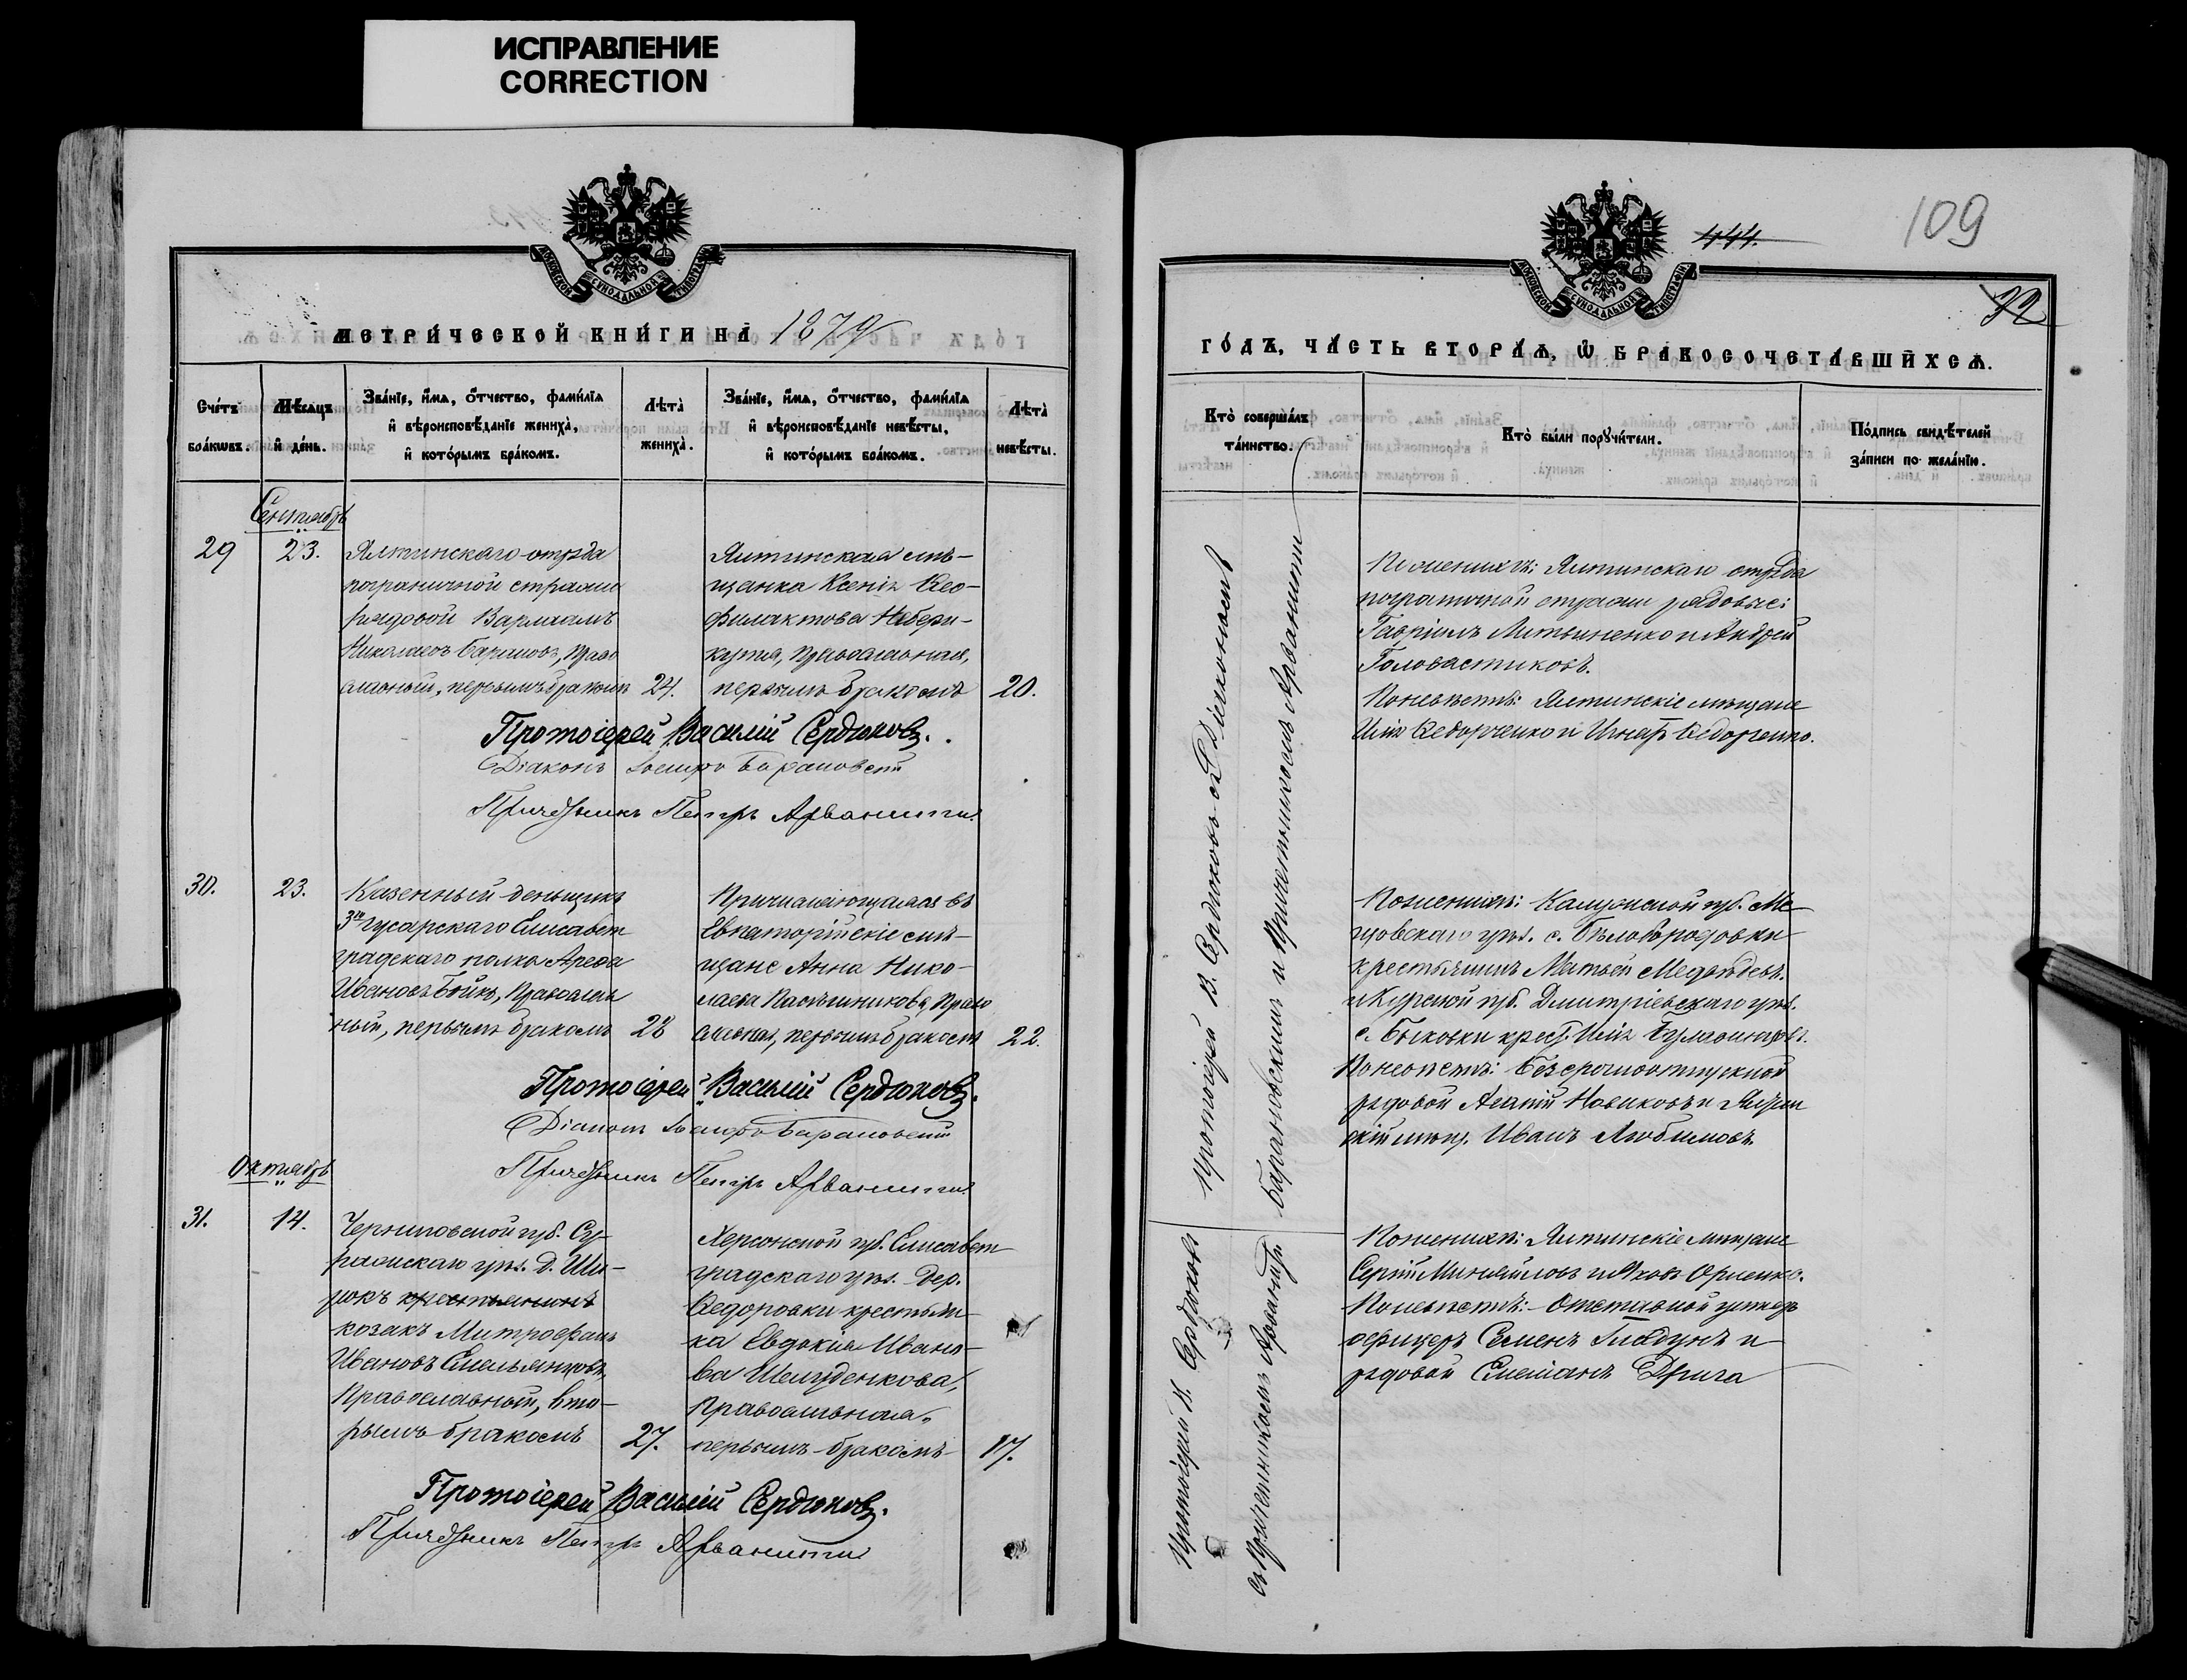 ИСПРАВЛЕНИЕ
CORRECTION
МОСКОВСКОЙ СУНОДАЛЬНОЙ ТИПОГРАФІИ
МЕТРИЧЕСКОЙ КНИГИ НА 1879
Счетъ браковъ.
Мѣсяцъ и день.
Званіе, имя, отчество, фамилія и вѣроисповѣданіе жениха, и которымъ бракомъ.
Лѣта жениха.
Званіе, имя, отчество, фамилія и вѣроисповѣданіе невѣсты, и которымъ бракомъ.
Лѣта невѣсты.
Сентябрь
29
23.
Ялтинскаго отряда
пограничной стражи
рядовой Варлаамъ
Николаевъ Бариловъ, право
славный, первымъ бракомъ
24.
Ялтинская мѣ-
щанка Ксенія Ѳео-
филактова
православная,
первымъ бракомъ
20.
Протоіерей Василій Сердюковъ.
Діаконъ Іосифъ Барановскій
Причетникъ Петръ Арванити
30.
23.
Казенный деньщикъ
3го гусарскаго Елисавет
градскаго полка Арефа
Ивановъ Бойко, православ
ный, первымъ бракомъ
28
Причисляющаяся въ
Евпаторійскіе мѣ-
щане Анна Нико-
лаева Пасѣшникова, право
славная, первымъ бракомъ
22.
Протоіерей Василій Сердюковъ.
Діаконъ Іосифъ Барановскій
Причетникъ Петръ Арванити
Октябрь
31.
14.
Черниговской губ. Су-
ражскаго уѣз. д. Ши-
рокъ крестьянинъ
козакъ Митрофанъ
Ивановъ Емельянцовъ,
православный, вто-
рымъ бракомъ
27.
Херсонской губ. Елисавет
градскаго уѣз. дер.
Ѳедоровки крестьян
ка Евдокія Ивано-
ва Шелуденкова,
православная,
первымъ бракомъ
17.
Протоіерей Василій Сердюковъ.
Причетникъ Петръ Арванити
МОСКОВСКОЙ СУНОДАЛЬНОЙ ТИПОГРАФІИ
444.
109
32
ГОДЪ, ЧАСТЬ ВТОРАЯ, Ѡ БРАКОСОЧЕТАВШИХСЯ.
Кто совершалъ таинство.
Кто были поручители.
Подпись свидѣтелей записи по желанію.
Протоіерей В. Сердюковъ съ Діакономъ
Барановскимъ и Причетникомъ Арванити
По женихѣ: Ялтинскаго отряда
пограничной стражи рядовые:
Гавріилъ Литвиненко и Андрей
Головастиковъ.
По невѣстѣ: Ялтинскіе мѣщане
Илія Ѳедорченко и Игнатъ Ѳедоренко.
По женихѣ: Калужской губ. Ме
щовскаго уѣз. с. Бѣлобородовки
крестьянинъ Матвѣй Медвѣдевъ.
и Курской губ. Дмитріевскаго уѣз.
с. Быковки крест. Илія
По невѣстѣ: Безсрочноотпускной
рядовой Агапій Новиковъ и Ялтин
скій мѣщ. Иванъ Любимовъ.
Протоіерей В. Сердюковъ
съ Причетникомъ Арванити
По женихѣ: Ялтинскіе мѣщане
Сергій Миняйловъ и Яковъ Орленко.
По невѣстѣ: Отставной унтеръ
офицеръ Семенъ и
рядовой Емеліанъ Дрига